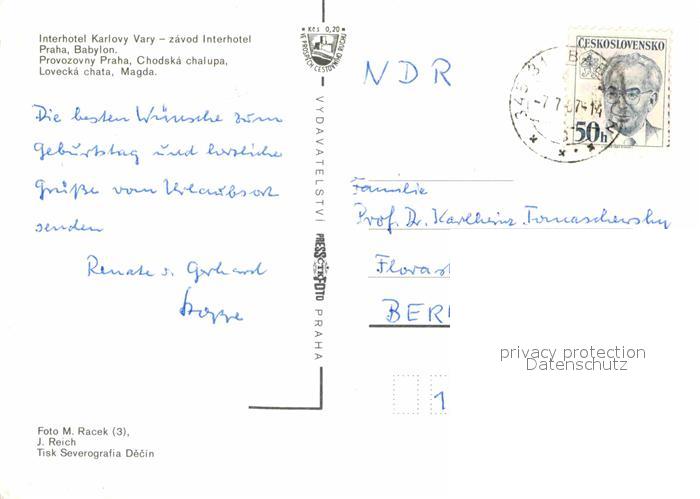 Interhotel Karlovy Vary – závod Interhotel
Praha, Babylon.
Provozovny Praha, Chodská chalupa,
Lovecká chata, Magda.
Kčs 0,20
ČESKOSLOVENSKO
50h
NDR
Die besten Wünsche zum
Geburtstag und herzliche
Grüße vom Urlaubsort
senden
Renate u. Gerhard
Hoppe
VYDAVATELSTVÍ PRESSFOTO PRAHA
ČTK
Familie
Prof. Dr. Karlheinz Tomaschewsky
Floras
BER
1
privacy protection
Datenschutz
Foto M. Racek (3),
J. Reich
Tisk Severografia Děčín